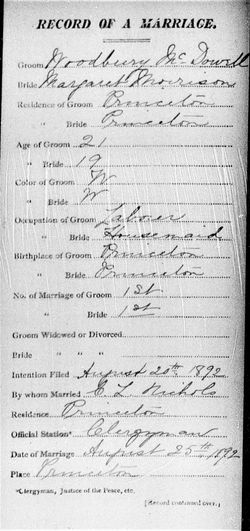 RECORD OF A MARRIAGE.
Groom Woodbury McDowell
Bride Margaret Morrison
Residence of Groom Princeton
" Bride Princeton
Age of Groom 21
" Bride 19
Color of Groom W
" Bride W
Occupation of Groom Laborer
" Bride Housemaid
Birthplace of Groom Princeton
" Bride Princeton
No. of Marriage of Groom 1st
" Bride 1st
Groom Widowed or Divorced
Bride " "
Intention Filed August 20th 1892
By whom Married E L Nichols
Residence Princeton
Official Station* Clergyman
Date of Marriage August 25th 1892
Place Princeton
*Clergyman, Justice of the Peace, etc.
[Record continued over.]